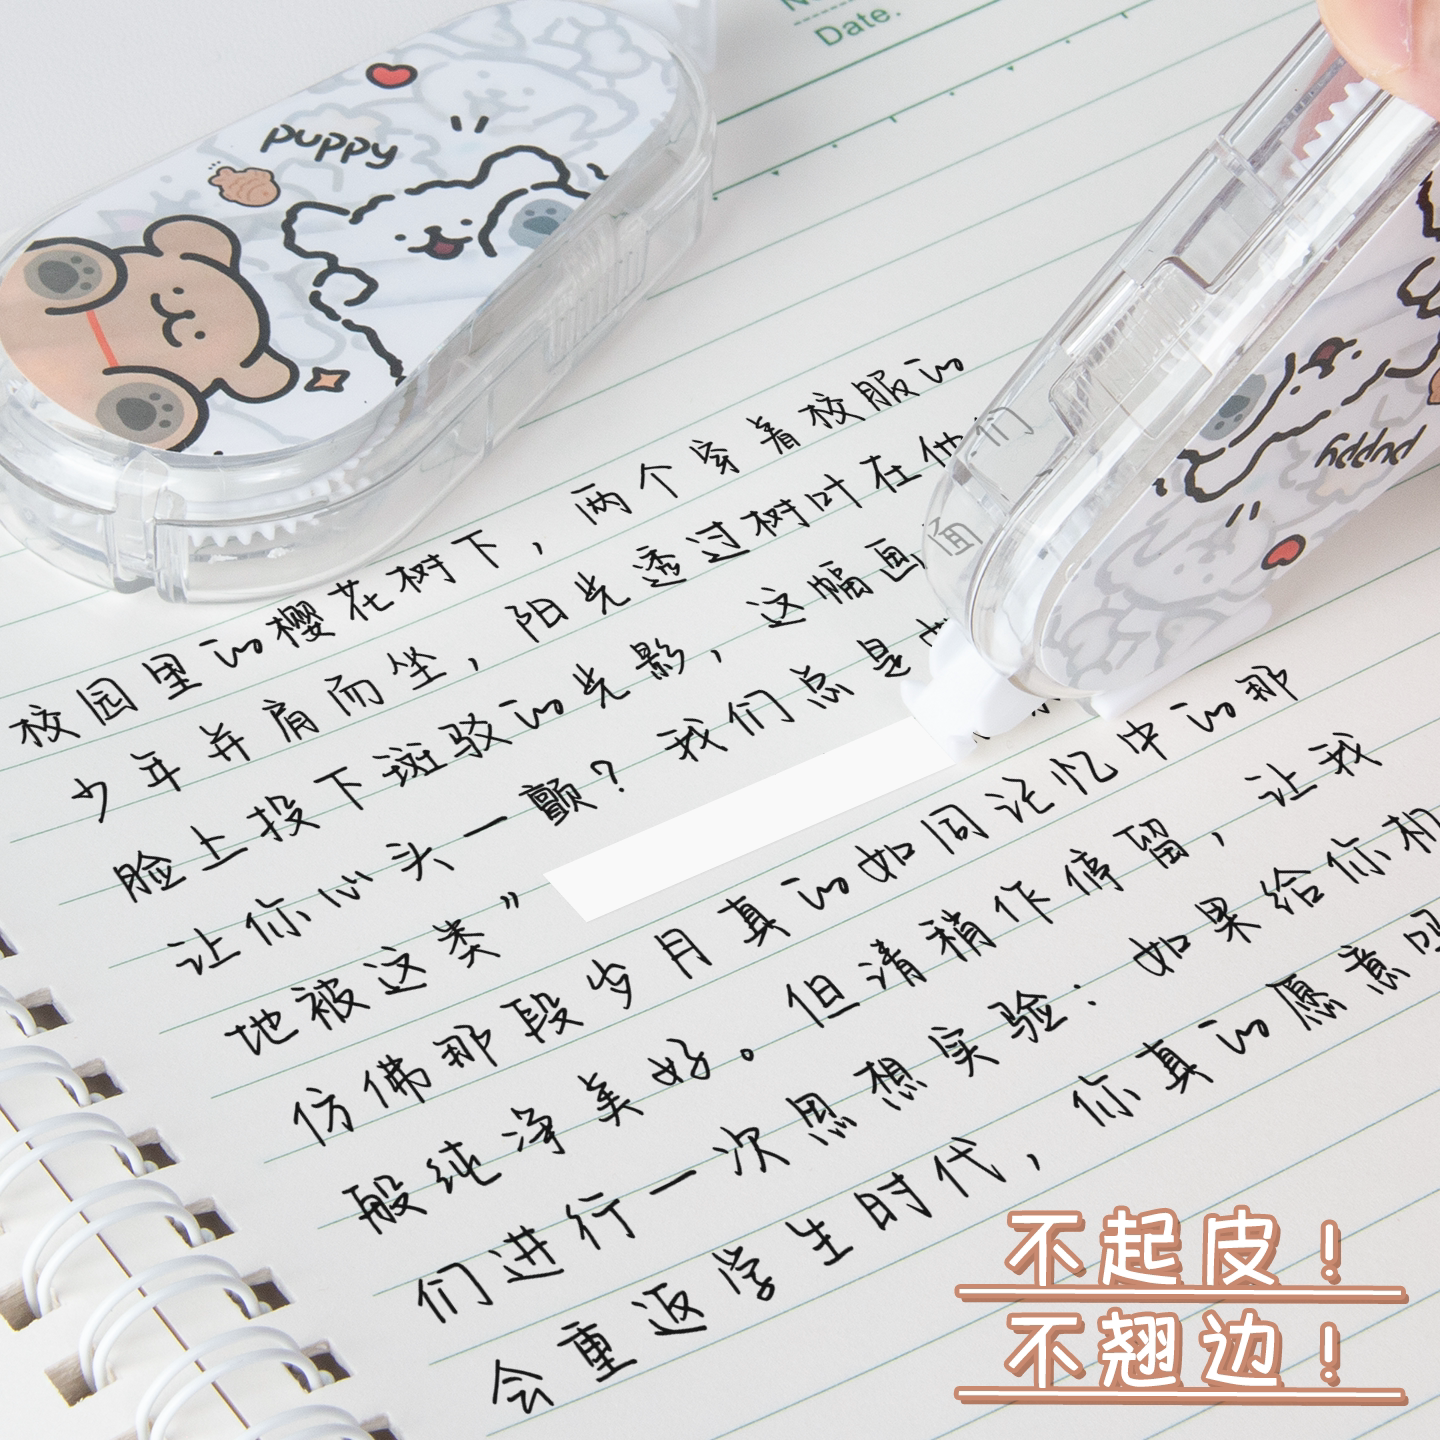 Date.
puppy
puppy
校园里的樱花树下，两个穿着校服的
少年并肩而坐，阳光透过树叶在他们
脸上投下斑驳的光影，这幅画面
让你心头一颤？我们总是
地被这类”
仿佛那段岁月真的如同记忆中的那
般纯净美好。但请稍作停留，让我
们进行一次思想实验：如果给你机
会重返学生时代，你真的愿意吗
不起皮！
不翘边！